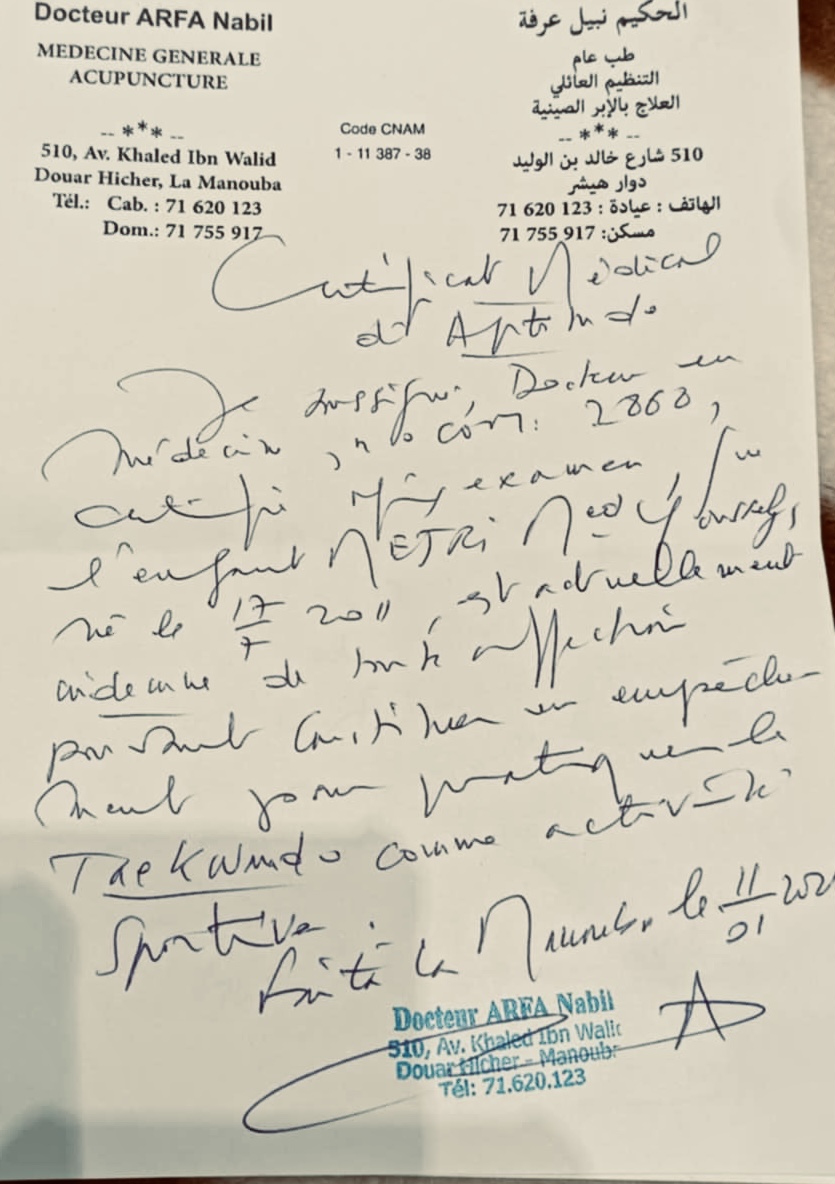 Docteur ARFA Nabil
MEDECINE GENERALE
ACUPUNCTURE
-- *** --
510, Av. Khaled Ibn Walid
Douar Hicher, La Manouba
Tél.: Cab. : 71 620 123
Dom.: 71 755 917
Code CNAM
1 - 11 387 - 38
الحكيم نبيل عرفة
طب عام
التنظيم العائلي
العلاج بالإبر الصينية
-- *** --
510 شارع خالد بن الوليد
دوار هيشر
الهاتف : عيادة : 123 620 71
مسكن: 917 755 71
Certificat Médical
d'Aptitude
Je soussigné, Docteur en
Médecine, n° 2868,
certifie après examen, que
l'enfant NETRI Med Youssef,
né le 17/7 2011, est actuellement
indemne de toute affection
pouvant constituer un empêche
ment pour pratiquer le
TaeKwondo comme activité
Sportive.
Fait à la Manouba le 11/01
Docteur ARFA Nabil
510, Av. Khaled Ibn Walid
Douar Hicher - Manouba
Tél: 71.620.123